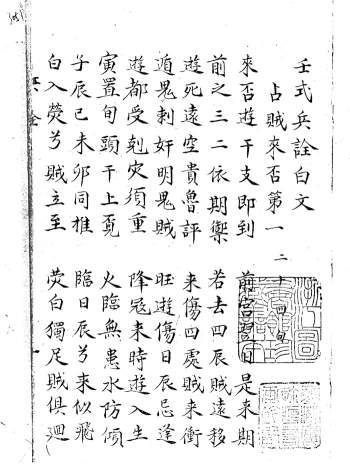 壬式兵詮白文
占賊來否第一 二十四句
來否遊干支即到 前宮翌日是来期
前之三二依期禦 若去四辰賊遠移
遊死遠空貴魯評 来傷四處賊来衝
遁鬼刺奸明鬼賊 旺遊傷日辰忌逢
遊都受剋灾須重 降冦来時遊入生
寅置旬頭干上覔 火臨無患水防傾
子辰巳未卯同推 臨日辰兮来似飛
白入熒兮賊立至 熒白獨足賊俱迴